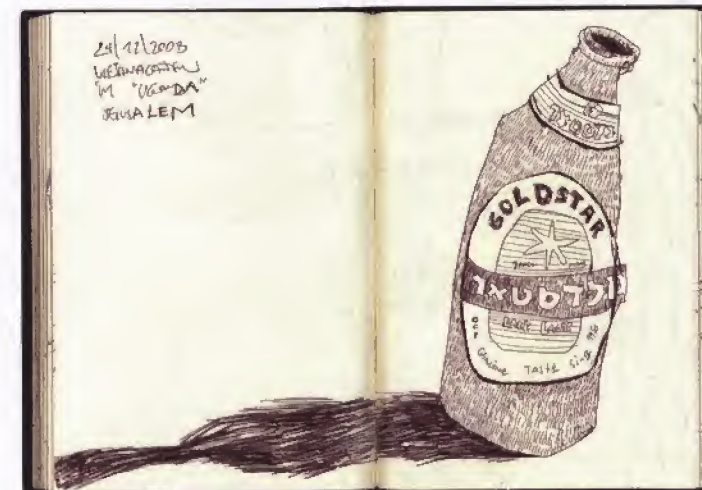 24/12/2008
WEIHNACHTEN
IM "UGANDA"
JERUSALEM
GOLDSTAR
גולדסטאר
Genuine TASTE Since